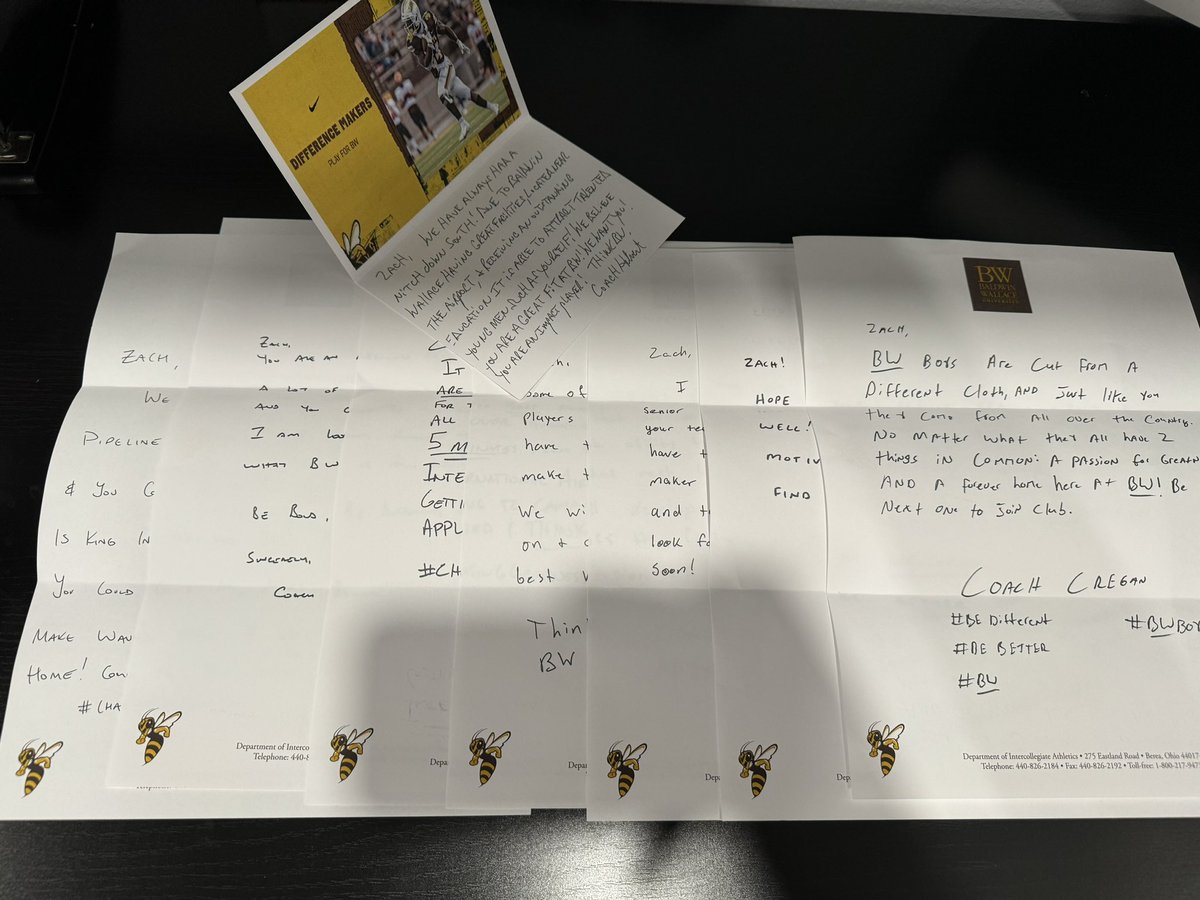 DIFFERENCE MAKERS
PLAY FOR BW
ZACH, WE HAVE ALWAYS HAD A
NITCH DOWN SOUTH! DUE TO BALDWIN
WALLACE HAVING GREAT FACILITIES, LOCATED NEAR
THE AIRPORT, & RECEIVING AN OUTSTANDING
EDUCATION IT IS ABLE TO ATTRACT TALENTED
YOUNG MEN SUCH AS YOURSELF! WE BELIEVE
YOU ARE A GREAT FIT AT BW! WE WANT YOU!
YOU ARE AN IMPACT PLAYER! THINK BW!
COACH
ZACH,
WE
PIPELINE
& YOU C
IS KING IN
YOU COULD
MAKE WAV
HOME! COM
#CHA
ZACH,
YOU ARE AN
A LOT OF
AND YOU C
I AM LOO
WHAT BW
BE BOLD,
SINCERELY,
COACH
Department of Interco
Telephone: 440-8
IT
ARE
FOR
ALL
5 M
INTE
GETTI
APPL
#CH
Depa
some of
players
have t
make t
We wi
on + c
best
Thin
BW
Depa
Zach,
I
senior
your te
have t
maker
and t
look fo
soon!
Dep
ZACH!
HOPE
WELL!
MOTIV
FIND
Dep
BW
BALDWIN
WALLACE
UNIVERSITY
ZACH,
BW BOYS ARE CUT FROM A
DIFFERENT CLOTH, AND JUST LIKE YOU
THEY COME FROM ALL OVER THE COUNTRY.
NO MATTER WHAT THEY ALL HAVE 2
THINGS IN COMMON: A PASSION FOR GREATN
AND A FOREVER HOME HERE AT BW! BE
NEXT ONE TO JOIN CLUB.
COACH CREGAN
#BE DIFFERENT #BWBOY
#BE BETTER
#BW
Department of Intercollegiate Athletics • 275 Eastland Road • Berea, Ohio 44017-
Telephone: 440-826-2184 • Fax: 440-826-2192 • Toll-free: 1-800-217-947